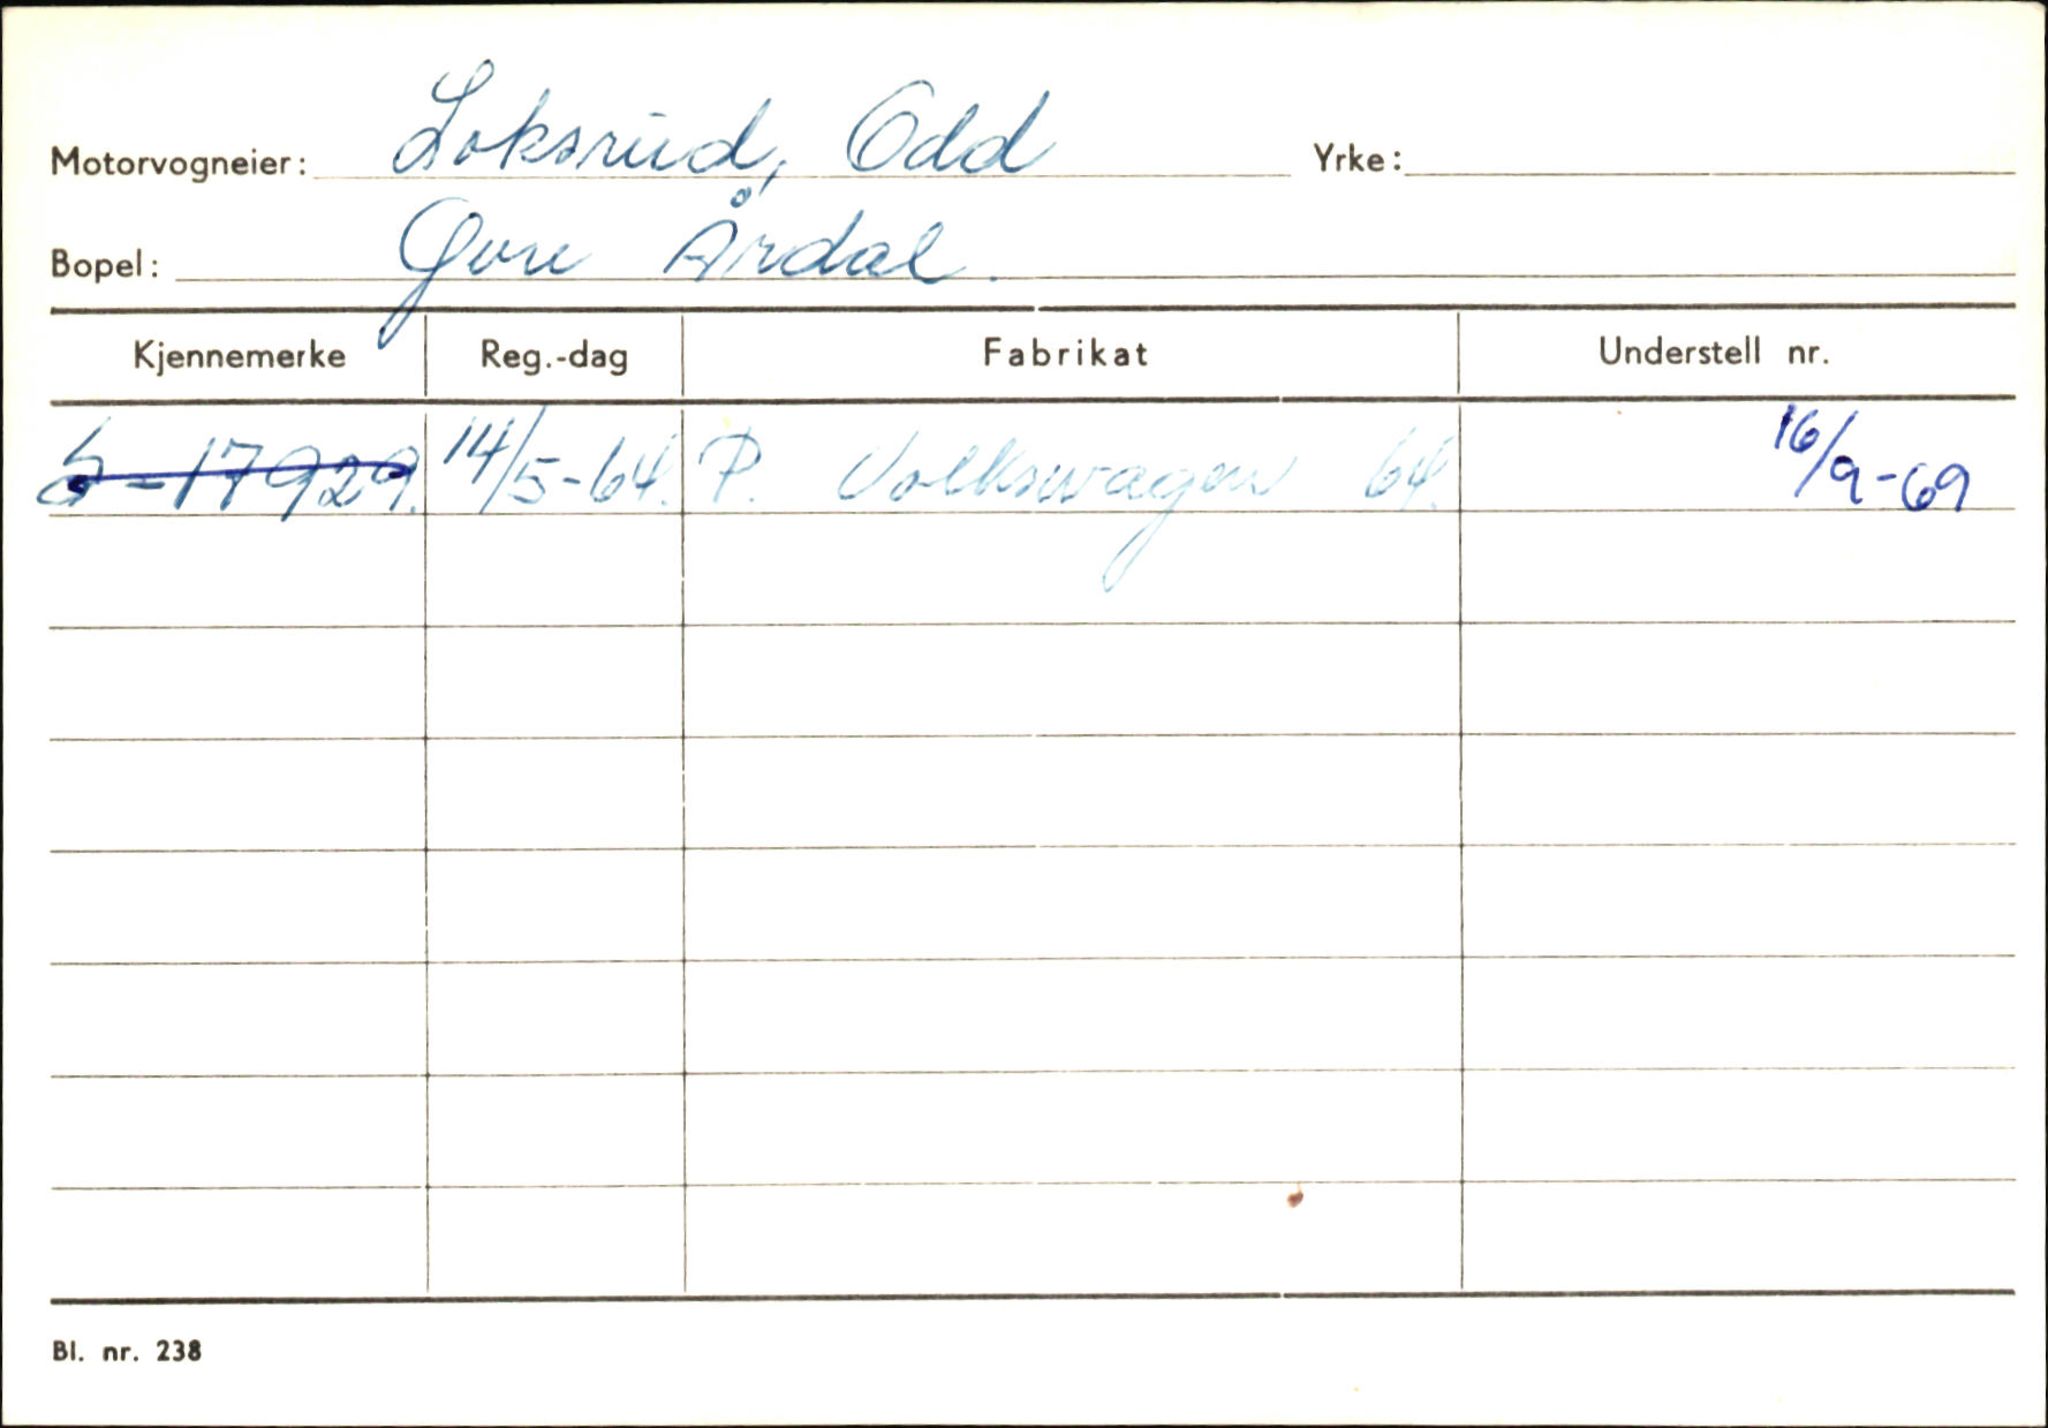 Motorvogneier: Loksrud, Odd Yrke:
Bopel: Øvre Årdal.
Kjennemerke Reg.-dag Fabrikat Understell nr.
S-17929. 14/5-64. P. Volkswagen 64. 16/9-69
Bl. nr. 238